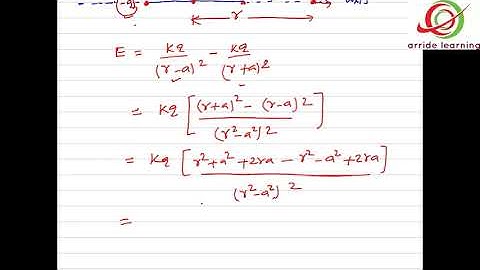 arride learning
(-q)
r
E = kq/(r-a)² - kq/(r+a)²
= kq [(r+a)² - (r-a)²/(r²-a²)²]
= kq [r²+a²+2ra - r²-a²+2ra/(r²-a²)²]
=